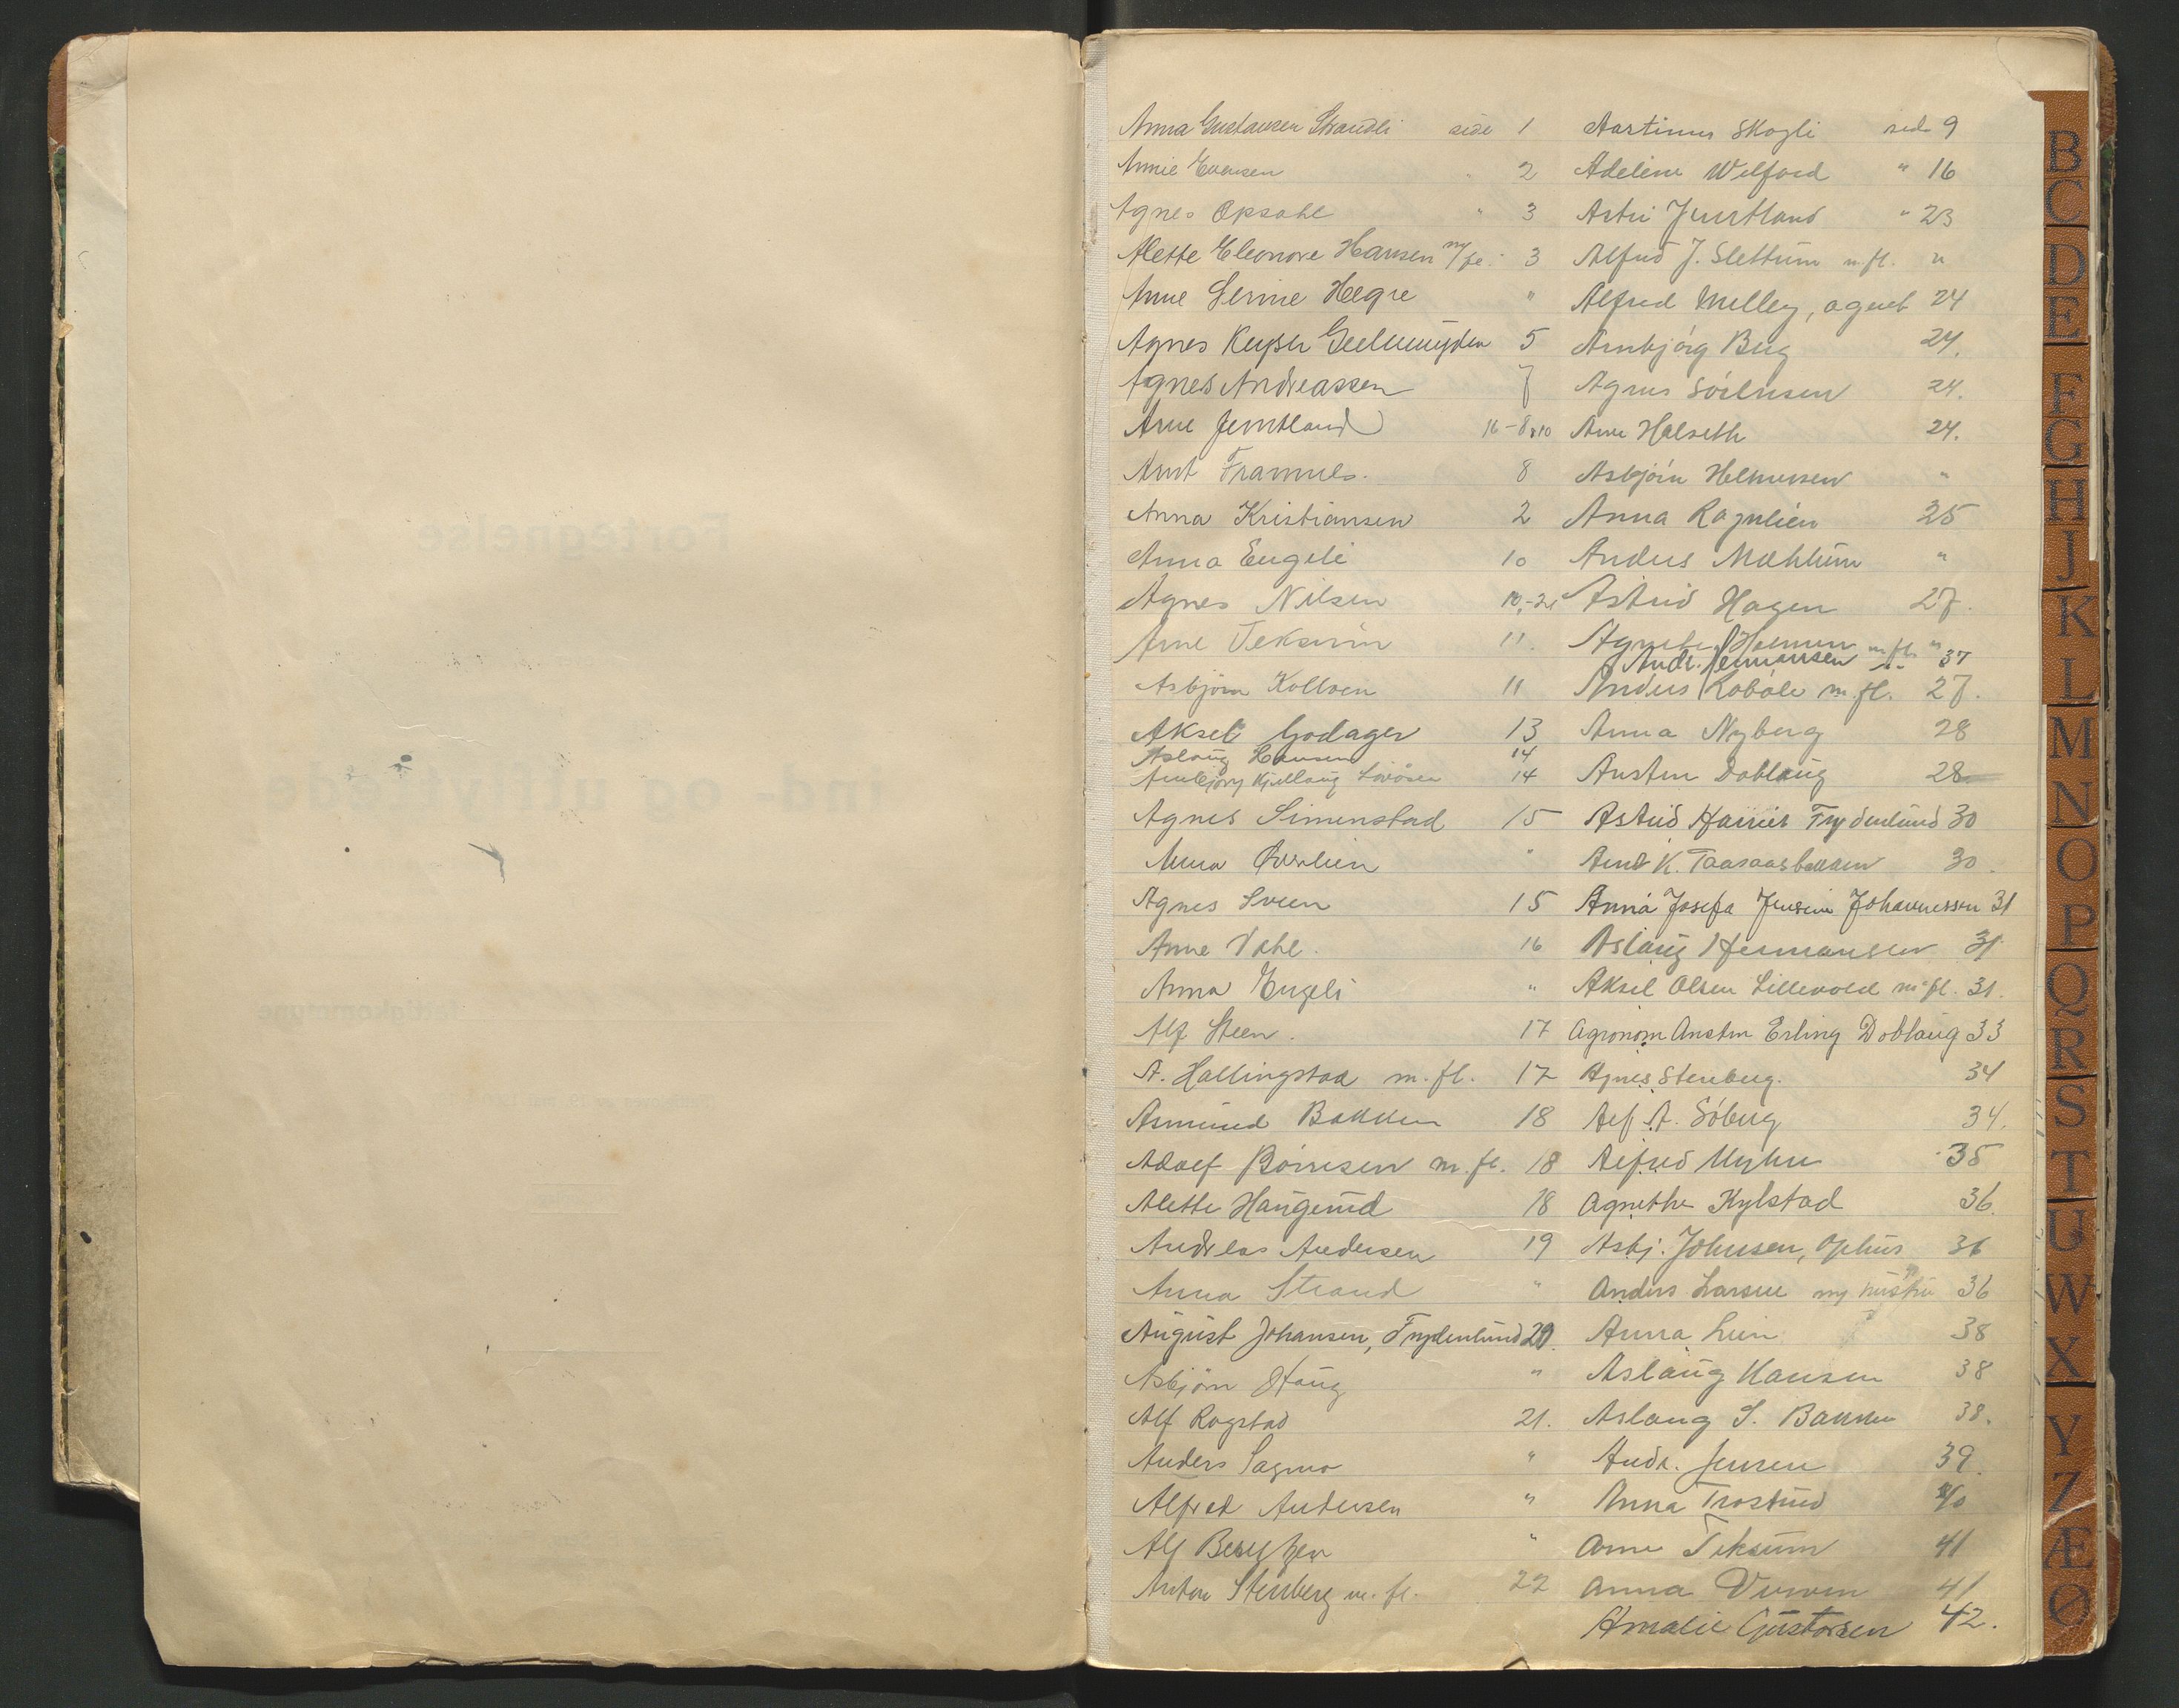 Anna Gustavsen Strandli side 1
Annie Evensen " 2
Agnes Opsahl " 3
Alette Eleonore Hansen m/fl. 3
Anne Serine Hegre "
Agnes Keyser Geelmuyden 5
Agnes Andreassen 7
Arne Jemtland 16-8&10
Arnt Framnes. 8
Anna Kristiansen 2
Anna Engeli 10
Agnes Nilsen 10,-21
Arne Teksum 11.
Asbjørn Kollven 11
Aksel Godager 13
Aslaug Hansen 14
Arnbjørg Kjellaug 14
Agnes Simenstad 15
Anna Øverlien "
Agnes Sveen 15
Anne Dahl. 16
Anna Engeli "
Alf Steen. 17
A. Hallingstad m.fl. 17
Asmund Bakken 18
Adolf Børresen m.fl. 18
Alette Haugerud 18
Andreas Andersen 19
Anna Strand "
August Johansen, Frydenlund 20.
Asbjørn Haug "
Alf Rogstad 21.
Anders Sagmo "
Alfred Andersen "
Alf "
Anton Stenberg m.fl. 22
Martinus Skogli side 9
Adeline Welford " 16
Astri Jemtland " 23
Alfred J. Slettum m.fl. "
Alfred Melley, agent 24
Arnbjørg Berg 24.
Agnes Sörensen 24.
Arne Halseth 24.
Asbjörn Helmersen "
Anna Rognlien 25
Anders Mæhlum "
Astrid Hagen 27.
Agnethe Holmen m.fl. "
Andr. Hermansen 37
Anders Robøle m.fl. 27.
Anna Nyberg 28
Austin Doblaug 28
Astrid Harriet Frydenlund 30
Arne K. Taasaasbakken 30.
Anna Josefa Jensine Johannessen 31
Aslaug Hermansen 31
Aksel Olsen Lillevold m.fl. 31.
Agronom Anstin Erling Doblaug 33
Agnes Stenberg. 34
Alf A. Söberg 34.
Alfred Myhre 35
Agnethe Kylstad 36.
Asbj. Johnsen, Ophus 36
Anders Larsen my hustru 36
Anna Lien 38
Aslaug Hansen 38
Aslaug S. Bakken 38.
Andr. Jensen 39.
Anna Trostrud 40
Arne Teksum 41
Anna 41
Amalie Gustavsen 42.
B
C
D
E
F
G
H
J
K
L
M
N
O
P
Q
R
S
T
U
W
X
Y
Z
Æ
Ø